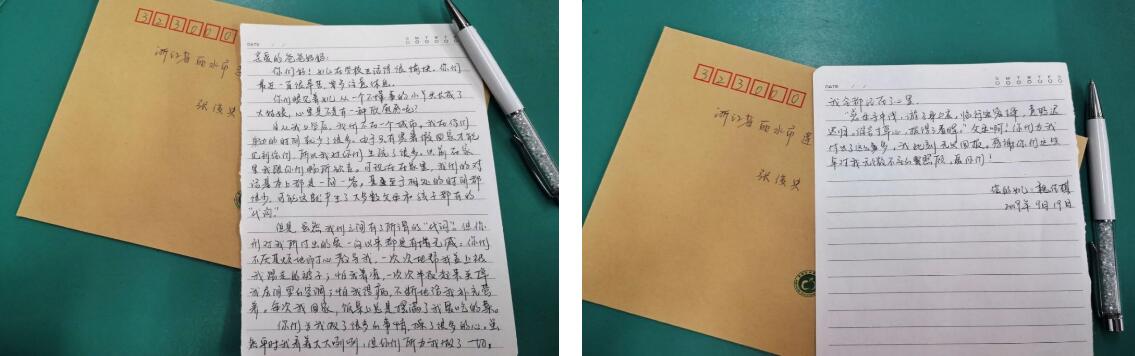 323000
浙江省丽水市莲
张俊英
DATE / /
S M T W T F S
亲爱的爸爸妈妈:
你们好!女儿在学校生活得很愉快。你们
最近一直很辛苦,要多注意休息。
你们眼见着女儿从一个不懂事的小丫头长成了
大姑娘,心里是不是有一种欣慰感呢?
自从我上学后,我们不在一个城市。我和你们
联系的时间就少了很多。由于只有寒暑假回家才能
见到你们,所以我对你们生疏了很多。以前在家
里我跟你们畅所欲言。可现在在家里,我们的对
话基本上都是一问一答。甚至于相处的时间都
很少,可能这就产生了大多数父母和孩子都有的
“代沟”。
但是,虽然我们之间有了所谓的“代沟”,但你
们对我所付出的爱一向以来都是有增无减:你们
不厌其烦地叮咛教导我,一次次地帮我盖上被
我踢走的被子;怕我着凉,一次次半夜起来关掉
我房间里的空调;怕我得病,不断地给我补充营
养。每次我回家,饭桌上总是摆满了我最爱吃的菜。
你们为我做了很多的事情,操了很多的心。虽
然平时我看着大大咧咧,但你们所为我做了一切,
323000
浙江省丽水市莲
张俊英
DATE / /
S M T W T F S
我全都记在了心里。
“慈母手中线,游子身上衣,临行密密缝,意恐迟
迟归,谁言寸草心,报得三春晖。”父母啊!你们为我
付出了这么多,我地无以回报。感谢你们这些
年对我无微不至的照顾,爱你们!
您的女儿:
2019年9月19日